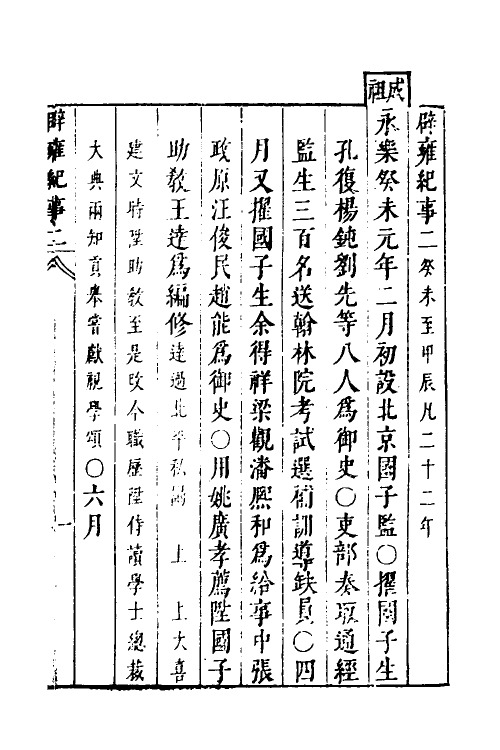 辟雍紀事二癸未至甲辰凡二十二年
成祖
永樂癸未元年二月初設北京國子監○擢國子生
孔復楊鈍劉先等八人為御史○吏部奏取通經
監生三百名送翰林院考試選補訓導缺員○四
月又擢國子生余得祥梁觀潘熙和為給事中張
政原汪俊民趙能為御史○用姚廣孝薦陞國子
助教王達為編修達過北平私謁 上 上大喜
建文時陞助教至是改今職歷陞侍讀學士總裁
大典兩知貢舉嘗獻視學頌○六月
辟雍紀事 二 一